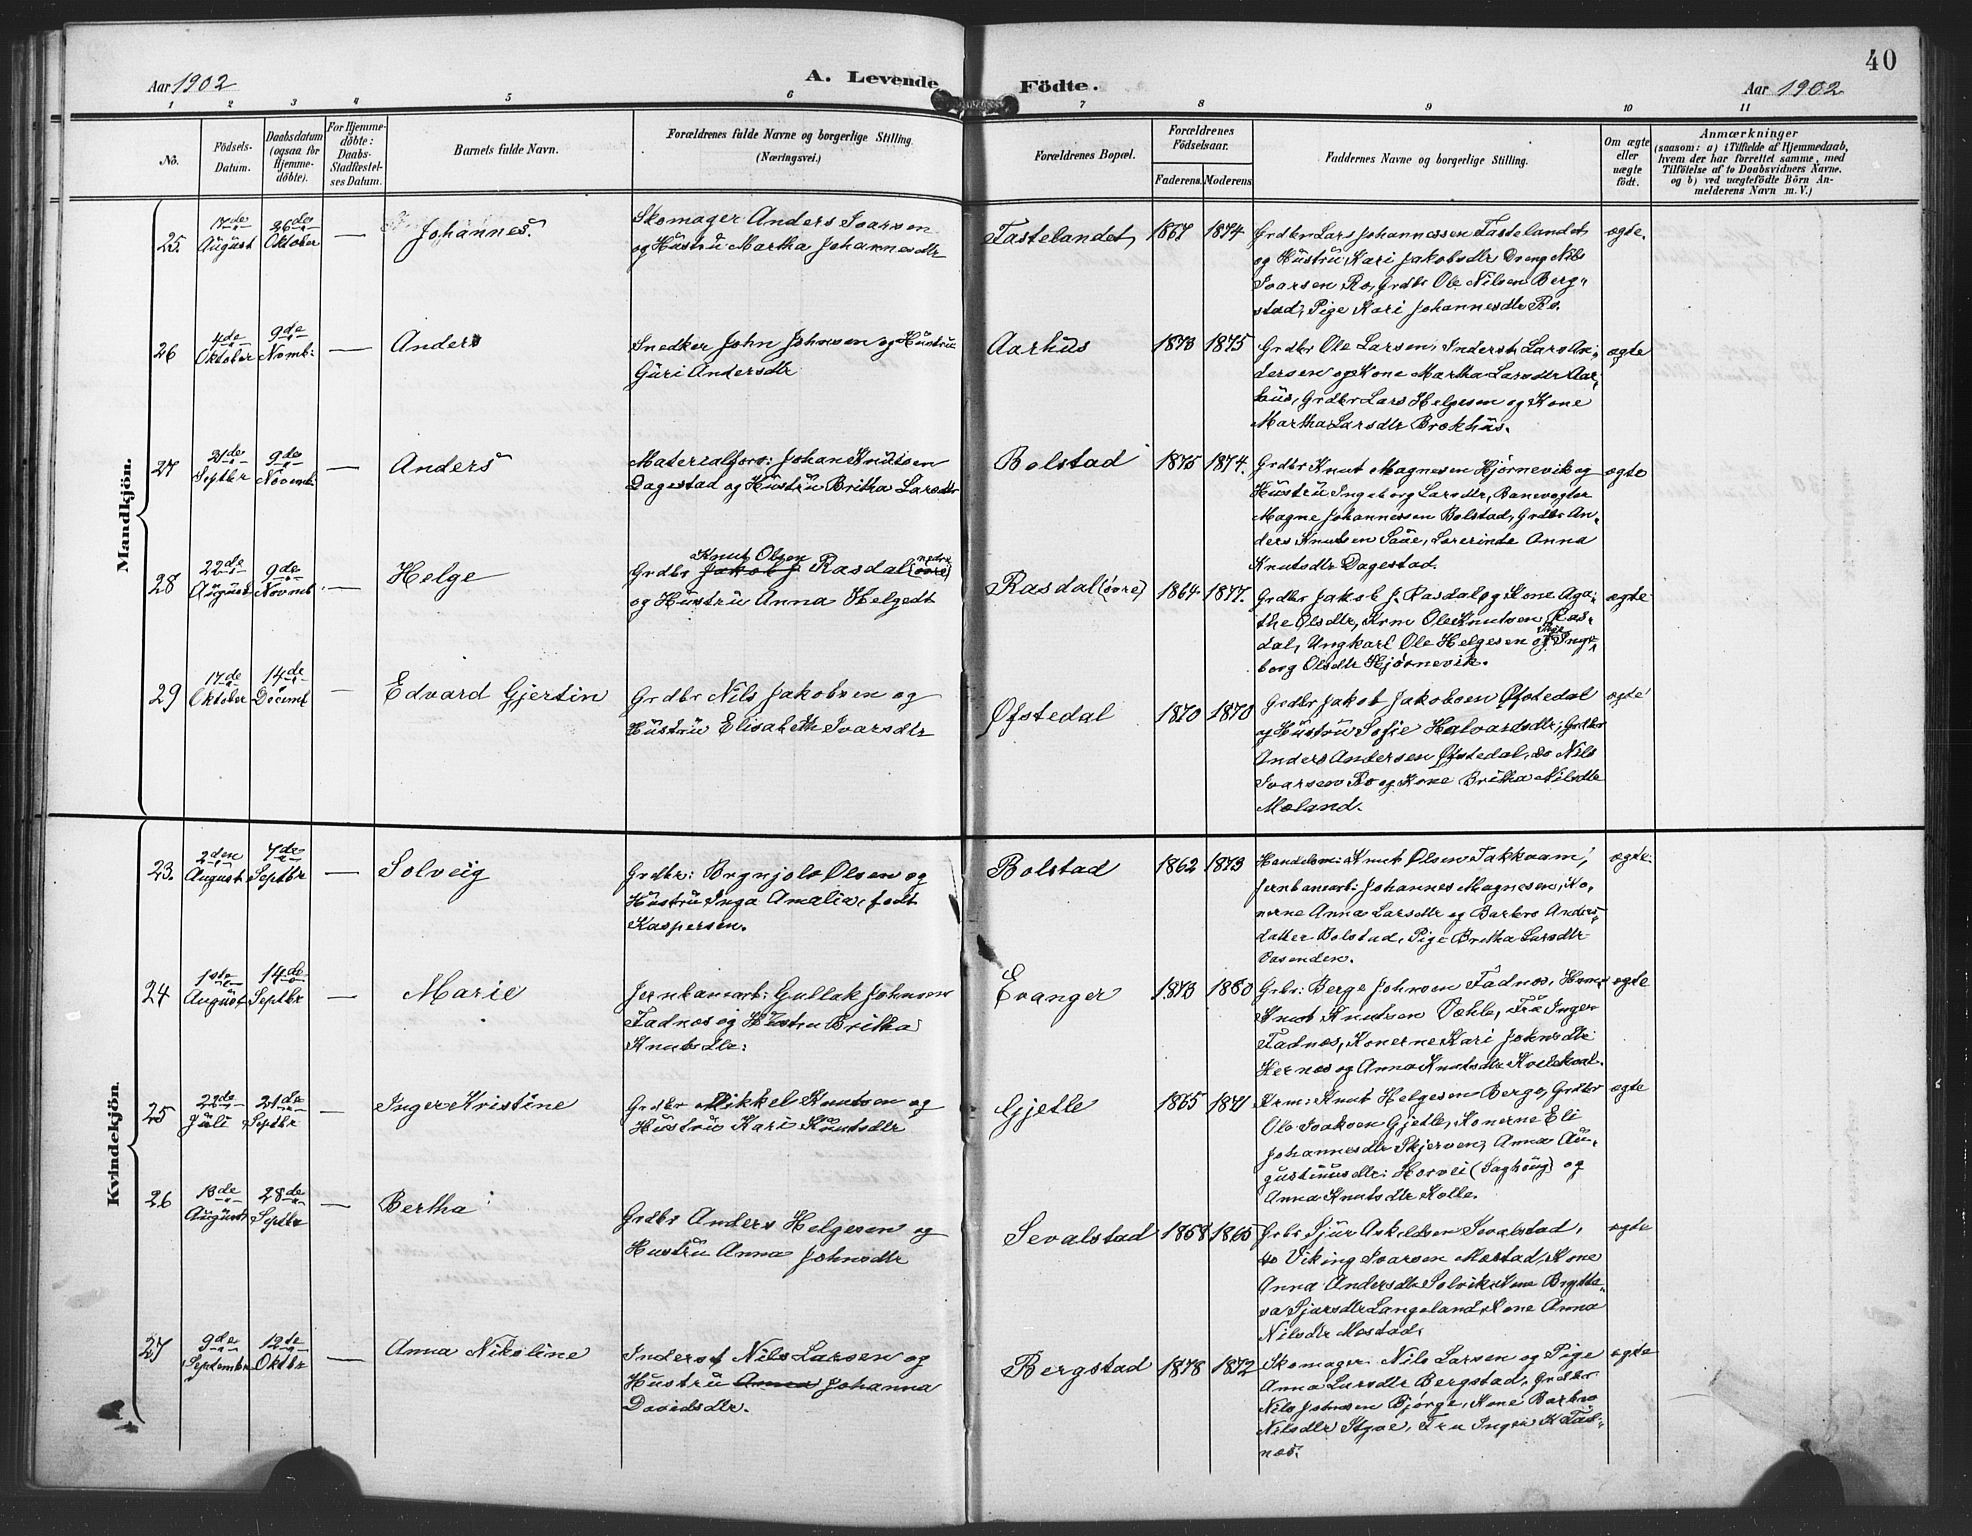 40
Aar 1902 A. Levende Födte. Aar 1902
1 2 3 4 5 6 7 8 9 10 11
No.
Födsels-
Datum.
Daabsdatum
(ogsaa for
Hjemme-
döbte).
For Hjemme-
döbte:
Daabs-
Stadfæstel-
ses Datum.
Barnets fulde Navn.
Forældrenes fulde Navne og borgerlige Stilling.
(Næringsvei.)
Forældrenes Bopæl.
Forældrenes
Födselsaar.
Faderens. Moderens
Faddernes Navne og borgerlige Stilling.
Om ægte
eller
uægte
födt.
Anmærkninger
(saasom: a) i Tilfælde af Hjemmedaab,
hvem der har forrettet samme, med
Tilföielse af to Daabsvidners Navne.
og b) ved uægtefödte Börn An-
melderens Navn m. V.)
Mandkjön.
25. 17de August 26de Oktober — Johannes.
Skomager Anders Ivarsen
og Hustru Martha Johannesdtr
Fastelandet 1867 1874
Grdbr Lars Johannessen Fastelandet
og Hustru Kari Jakobsdtr, Dreng Nils
Ivarsen Ro, Grdbr Ole Nilsen Berg-
stad, Pige Kari Johannesdtr Ro.
ægte.
26 4de Oktober 9de Novmb: — Anders
Snedker John Johnsen og Hustru
Guri Andersdtr
Aarhus 1873 1875
Grdbr Ole Larsen, Inderst Lars An-
dersen og Kone Martha Larsdtr Aar-
hus, Grdbr Lars Helgesen og Kone
Martha Larsdtr Brekhus.
ægte
27 21de Septbr 9de Novemb: — Anders
Materialforv: Johan Knutsen
Dagestad og Hustru Britha Larsdtr
Bolstad 1875 1874.
Grdbr Knut Magnesen Hjørnevik og
Hustru Ingeborg Larsdtr, Banevogter
Magne Johannessen Bolstad, Grdbr An-
ders Knutsen Saue, Lærerinde Anna
Knutsdtr Dagestad.
ægte
28 22de August 9de Novmb: — Helge
Knut Olsen nedre
Grdbr Jakob J. Rasdal (øvre)
og Hustru Anna Helgedt
Rasdal (øvre) 1864 1877.
Grdbr Jakob J. Rasdal og Kone Aga-
the Olsdtr, Krm Ole Knutsen Ras-
dal, Ungkarl Ole Helgesen og Pige Inge-
borg Olsdtr Hjørnevik.
ægte
29 17de Oktober 14de Decemb — Edvard Gjertin
Grdbr Nils Jakobsen og
Hustru Elisabeth Ivarsdtr
Øfstedal 1870 1870
Grdbr Jakob Jakobsen Øfstedal
og Hustru Sofie Halvardsdtr, Grdbr
Anders Andersen Øfstedal, do Nils
Ivarsen Ro og Kone Britha Nilsdtr
Mæland.
ægte
Kvindekjön.
23. 2den August 7de Septbr — Solveig
Grdbr: Brynjolv Olsen og
Hustru Inga Amalia, født
Kaspersen.
Bolstad 1862 1873
Handelsm: Knut Olsen Takkvam,
Jernbanearb: Johannes Magnesen, Ko-
nerne Anna Larsdtr og Barbro Anders-
datter Bolstad, Pige Britha Larsdtr
Vasenden.
ægte.
24 1ste August 14de Septbr — Marie
Jernbanearb: Gullak Johnsen
Fadnes og Hustru Britha
Knutsdtr:
Evanger 1873 1880
Grbr: Berge Johnsen Fadnes,
Knut Knutsen Væhle, Fru Inger
Fadnes, Konerne Kari Johnsdtr
Hernes og Anna Knutsdtr Kvilekval.
ægte
25 22de Juli 21de Septbr — Inger Kristine
Grdbr Mikkel Knutsen og
Hustru Kari Knutsdtr
Gjetle 1865 1871
Krm: Knut Helgesen Berge, Grdbr
Ole Isaksen Gjetle, Konerne Eli
Johannesdtr Skjerven, Anna Au-
gustinusdtr: Horvei (Faghaug) og
Anna Knutsdtr Kolle.
ægte
26 13de August 28de Septbr — Bertha
Grdbr Anders Helgesen og
Hustru Anna Johnsdtr
Sevalstad 1858 1865
Grbr Sjur Askeldsen Sevalstad,
do Viking Ivarsen Mestad, Kone
Anna Andersdtr Solvik, Kone Brytte-
va Sjursdtr Langeland, Kone Anna
Nilsdtr Mestad.
ægte
27 9de Septembr 12de Oktbr — Anna Nikoline
Inderst Nils Larsen og
Hustru Anna Johanna
Davidsdtr.
Bergstad 1878 1872
Skomager Nils Larsen og Pige
Anna Larsdtr Bergstad, Grdbr
Nils Johnsen Bjørge, Kone Barbro
Nilsdtr Styve, Fru Inger K Fad-
nes.
ægte